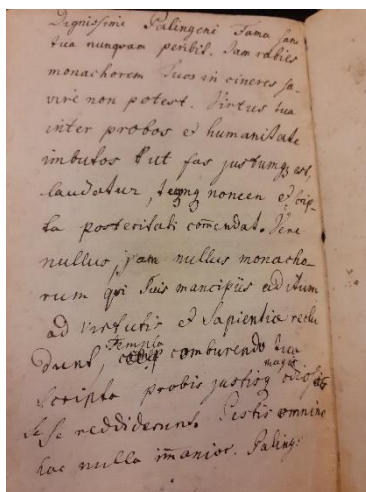 Dignissime Palingeni Fama sane
tua nunquam peribit. Jam rabies
monachorem tuos in cineres sæ-
vire non potest. Virtus tua
inter probos et humanitate
imbutos ut fas justumq; est,
laudatur, nomen et scrip-
ta posteritati com̄endat. Vere
nullus, jam nullus monacho-
rum qui suis mancipiis additum
ad virtutis et Sapientiæ reclu
dunt, Templa comburendo tua
scripta probis justisq; magis odiosos
se reddiderunt. Pestis omnino
hac nulla im̄anior. Paling: